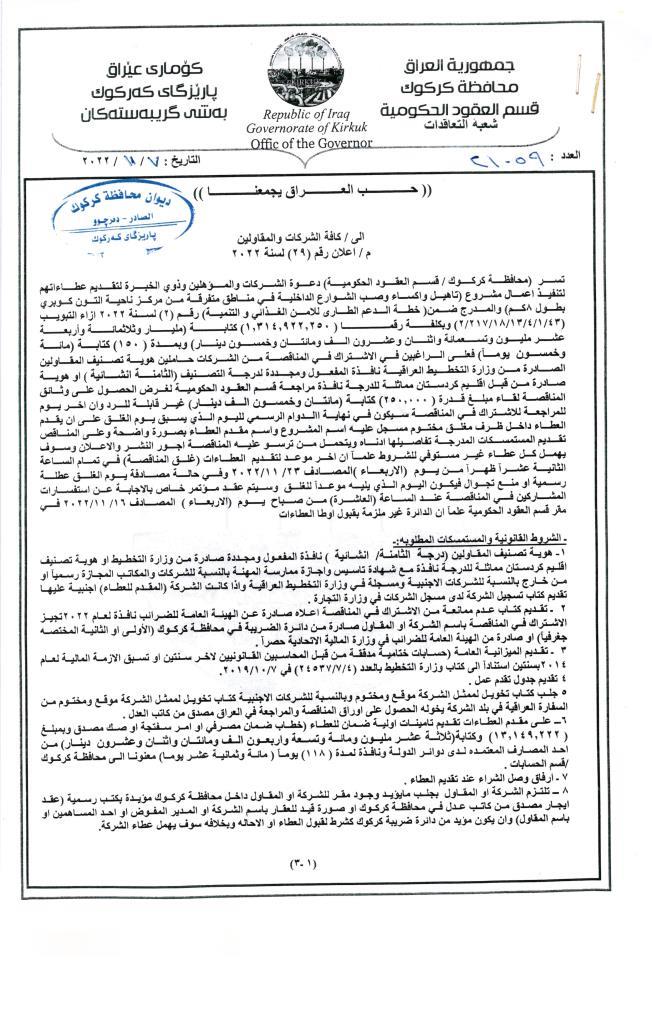 جمهورية العراق
محافظة كركوك
قسم العقود الحكومية
شعبة التعاقدات
كۆماری عێراق
پارێزگای كەركوك
بەشی گرێبەستەكان
KIRKUK
Republic of Iraq
Governorate of Kirkuk
Offic of the Governor
العدد : ٢١٠٥٩
التاريخ: ٧/ ١١/ ٢٠٢٢
(( حب العراق يجمعنا ))
ديوان محافظة كركوك
الصادر - دەرچوو
پارێزگای كەركوك
الى/ كافة الشركات والمقاولين
م/ اعلان رقم (٢٩) لسنة ٢٠٢٢
تسر (محافظة كركوك / قسم العقود الحكومية) دعوة الشركات والمؤهلين وذوي الخبرة لتقديم عطاءاتهم
لتنفيذ اعمال مشروع (تاهيل واكساء وصب الشوارع الداخلية في مناطق متفرقة من مركز ناحية التون كوبري
بطول ٨كم) والمدرج ضمن( خطة الدعم الطارى للامن الغذائي و التنمية) رقم (٢) لسنة ٢٠٢٢ ازاء التبويب
(٢/٢١٧/١٨/١٣/٤/١/٤٣) وبكلفة رقما (١,٣١٤,٩٢٢,٢٥٠) كتابة (مليار وثلاثمائة وأربعة
عشر مليون وتسعمائة واثنان وعشرون الف ومائتان وخمسون دينار) وبمدة (١٥٠) كتابة (مائة
وخمسون يوماً) فعلى الراغبين في الاشتراك في المناقصة من الشركات حاملين هوية تصنيف المقاولين
الصادرة من وزارة التخطيط العراقية نافذة المفعول ومجددة لدرجة التصنيف (الثامنة انشائية ) او هوية
صادرة من قبل اقليم كردستان مماثلة للدرجة نافذة مراجعة قسم العقود الحكومية لغرض الحصول على وثائق
المناقصة لقاء مبلغ قدرة (٢٥٠,٠٠٠) كتابة (مائتان وخمسون الف دينار) غير قابلة للرد وان اخر يوم
للمراجعة للاشتراك في المناقصة سيكون في نهاية الدوام الرسمي لليوم الذي يسبق يوم الغلق على ان يقدم
العطاء داخل ظرف مغلق مختوم مسجل عليه اسم المشروع واسم مقدم العطاء بصورة واضحة وعلى المناقص
تقديم المستمسكات المدرجة تفاصيلها ادناه ويتحمل من ترسو عليه المناقصة اجور النشر والاعلان وسوف
يهمل كل عطاء غير مستوفي للشروط علماً ان اخر موعد لتقديم العطاءات (غلق المناقصة) في تمام الساعة
الثانية عشراً ظهراً من يوم (الاربعاء )المصادف ٢٠٢٢/١١/٢٣ وفي حالة مصادفة يوم الغلق عطلة
رسمية او منع تجوال فيكون اليوم الذي يليه موعداً للغلق وسيتم عقد مؤتمر خاص بالاجابة عن استفسارات
المشاركين في المناقصة عند الساعة (العاشرة) من صباح يوم (الاربعاء ) المصادف ٢٠٢٢/١١/١٦ في
مقر قسم العقود الحكومية علماً ان الدائرة غير ملزمة بقبول اوطا العطاءات
- الشروط القانونية والمستمسكات المطلوبه:-
١- هوية تصنيف المقاولين (درجة الثامنة/ انشائية ) نافذة المفعول ومجددة صادرة من وزارة التخطيط او هوية تصنيف
اقليم كردستان مماثلة للدرجة نافذة مع شهادة تاسيس واجازة ممارسة المهنة بالنسبة للشركات والمكاتب المجازة رسمياً او
من خارج بالنسبة للشركات الاجنبية ومسجلة في وزارة التخطيط العراقية واذا كانت الشركة (المقدم للعطاء) اجنبية عليها
تقديم كتاب تسجيل الشركة لدى مسجل الشركات في وزارة التجارة .
٢ - تقديم كتاب عدم ممانعة من الاشتراك في المناقصة اعلاه صادرة عن الهيئة العامة للضرائب نافذة لعام ٢٠٢٢تجيز
الاشتراك في المناقصة باسم الشركة او المقاول صادرة من دائرة الضريبة في محافظة كركوك (الأولى او الثانية المختصه
جغرفياً) او صادرة من الهيئة العامة للضرائب في وزارة المالية الاتحادية حصراً .
٣ - تقديم الميزانية العامة (حسابات ختامية مدققة من قبل المحاسبين القانونيين لاخر سنتين او تسبق الازمة المالية لعام
٢٠١٤بسنتين استناداً الى كتاب وزارة التخطيط بالعدد (٢٤٥٣٧/٧/٤) في ٢٠١٩/١٠/٧.
٤ تقديم جدول تقدم عمل .
٥ جلب كتاب تخويل لممثل الشركة موقع ومختوم وبالنسبة للشركات الاجنبية كتاب تخويل لممثل الشركة موقع ومختوم من
السفارة العراقية في بلد الشركة يخوله الحصول على اوراق المناقصة والمراجعة في العراق مصدق من كاتب العدل .
٦– على مقدم العطاءات تقديم تامينات اولية ضمان للعطاء (خطاب ضمان مصرفي او امر سفتجة او صك مصدق وبمبلغ
(١٣,١٤٩,٢٢٢) وكتابة(ثلاثة عشر مليون ومائة وتسعة واربعون الف ومائتان واثنان وعشرون دينار) من
احد المصارف المعتمده لدى دوائر الدولة ونافذة لمدة (١١٨) يوماً ( مائة وثمانية عشر يوما) معنونا الى محافظة كركوك
/قسم الحسابات .
٧ - ارفاق وصل الشراء عند تقديم العطاء .
٨ – تلتزم الشركة او المقاول بجلب مايؤيد وجود مقر للشركة او المقاول داخل محافظة كركوك مؤيدة بكتب رسمية (عقد
ايجار مصدق من كاتب عدل في محافظة كركوك او صورة قيد للعقار باسم الشركة او المدير المفوض او احد المساهمين او
باسم المقاول) وان يكون مؤيد من دائرة ضريبة كركوك كشرط لقبول العطاء او الاحاله وبخلافه سوف يهمل عطاء الشركة.
(٣-١)